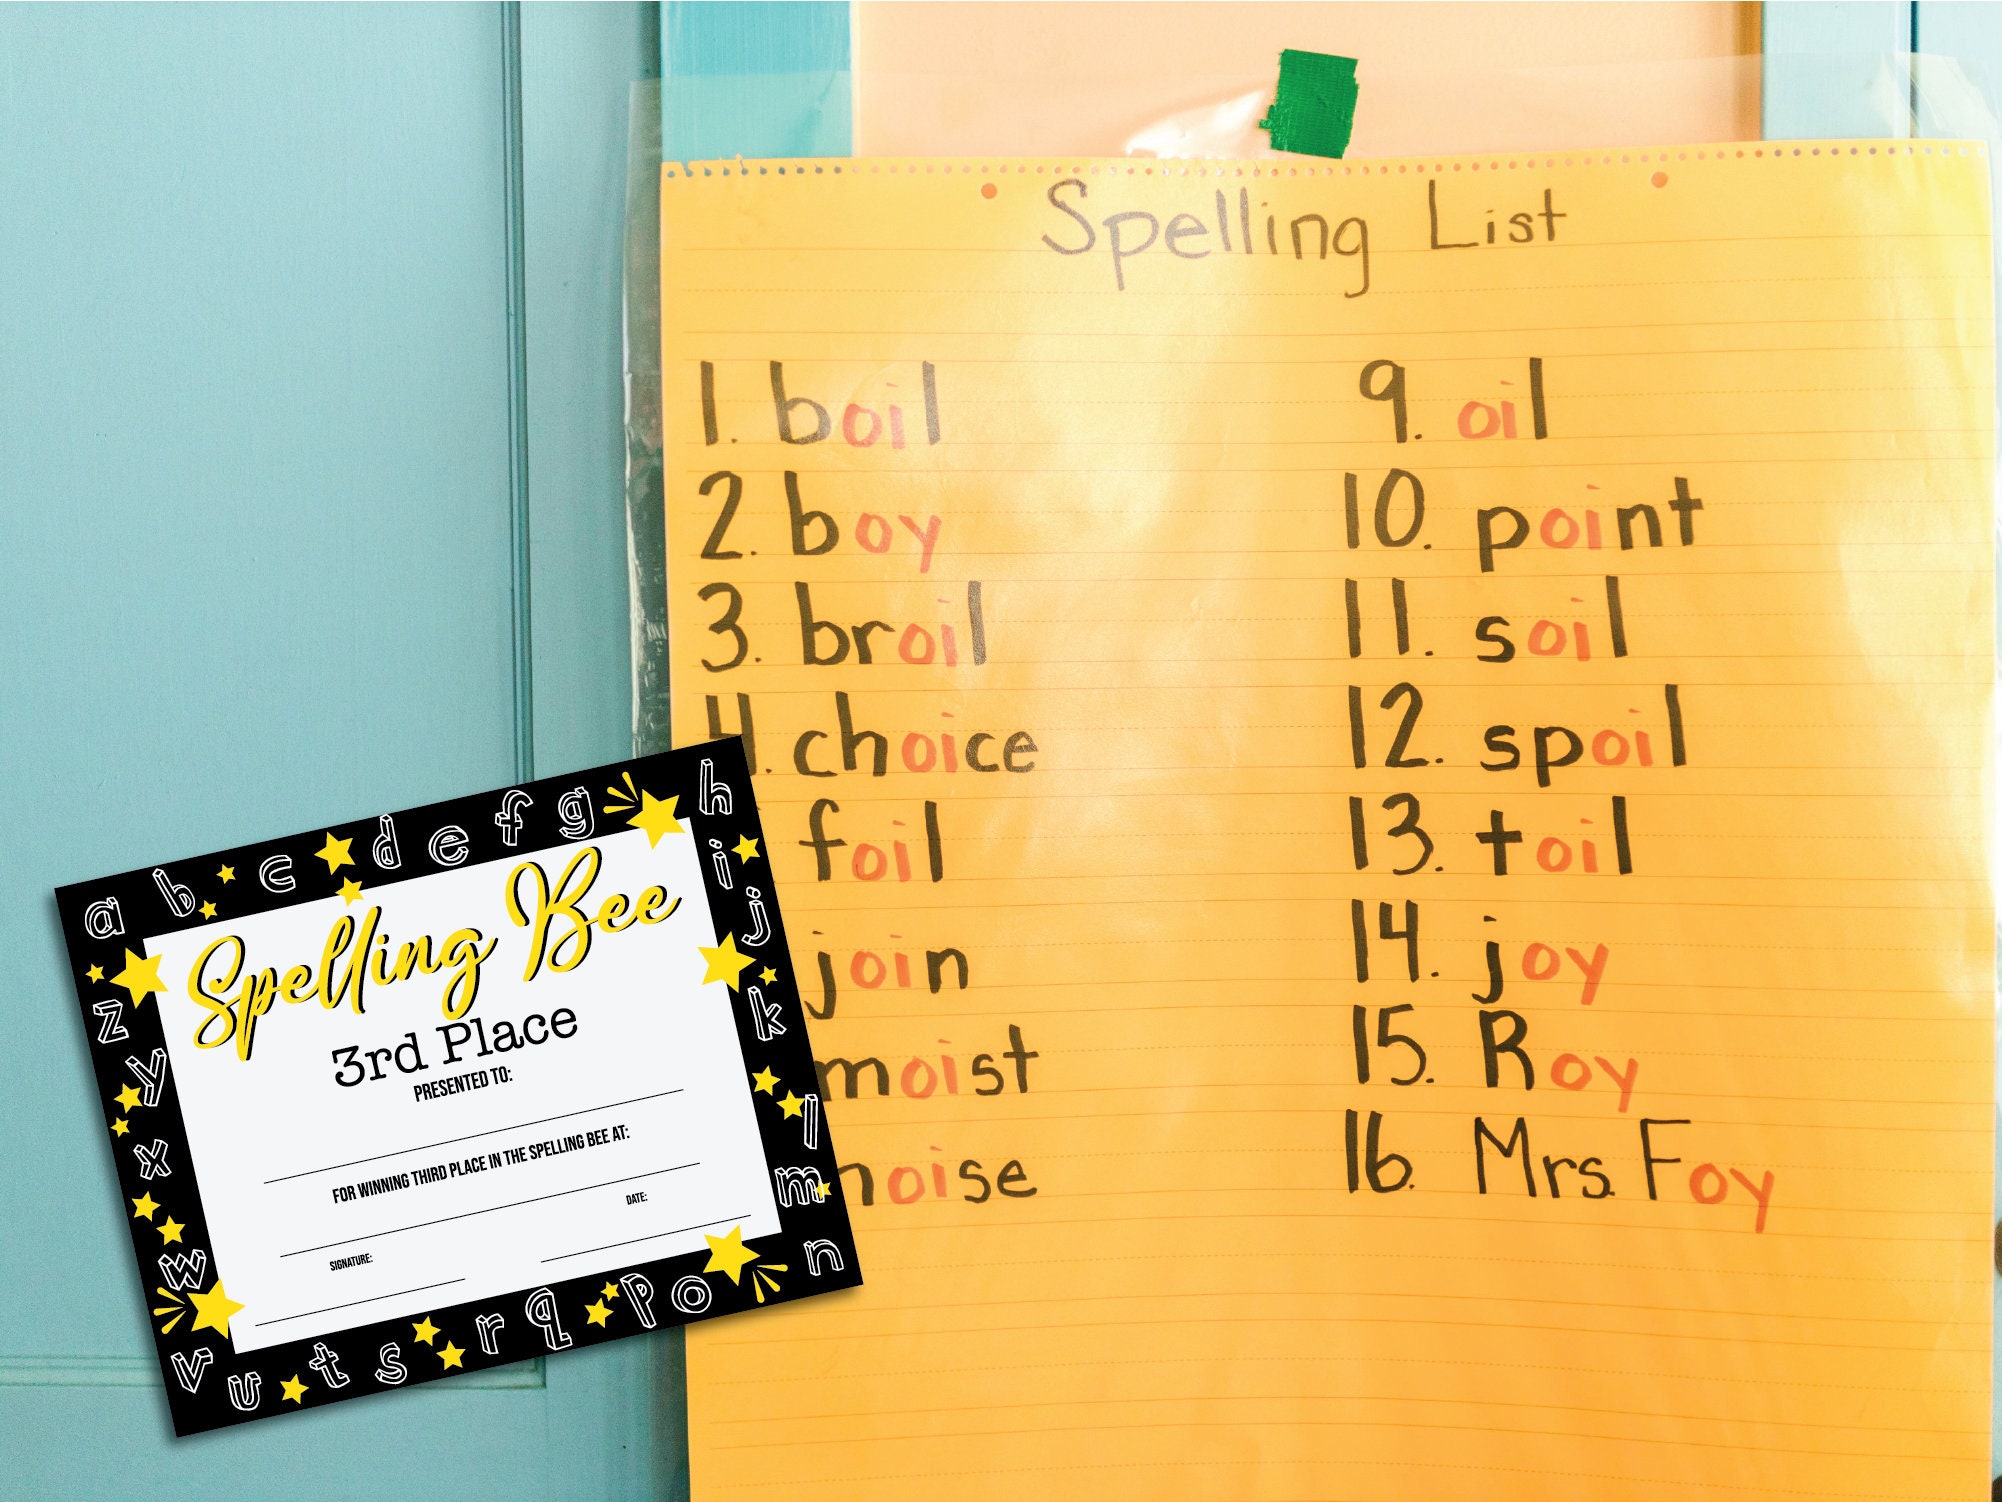 Spelling List
1. boil
2. boy
3. broil
4. choice
foil
join
moist
noise
9. oil
10. point
11. soil
12. spoil
13. toil
14. joy
15. Roy
16. Mrs. Foy
a b c d e f g h i j k l m n o p q r s t u v w x y z
Spelling Bee
3rd Place
PRESENTED TO:
FOR WINNING THIRD PLACE IN THE SPELLING BEE AT:
DATE:
SIGNATURE: